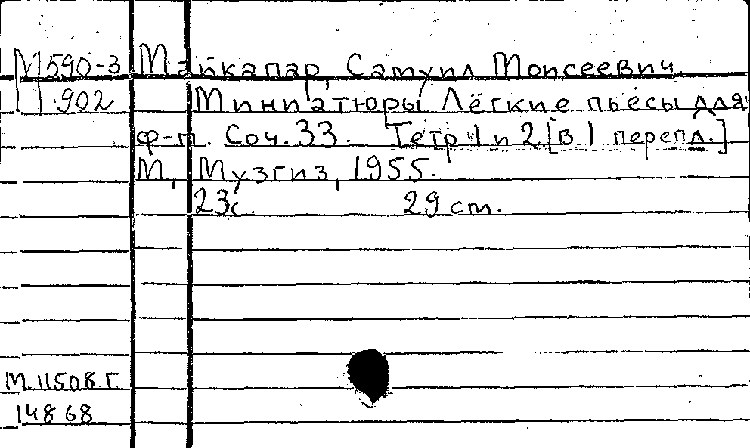 М590-3 Майкапар, Самуил Моисеевич.
902 Миниатюры Лёгкие пьесы для
ф-п. Соч. 33. Тетр 1 и 2 [в 1 перепл.]
М, Музгиз, 1955.
23с 29 cm.
14868